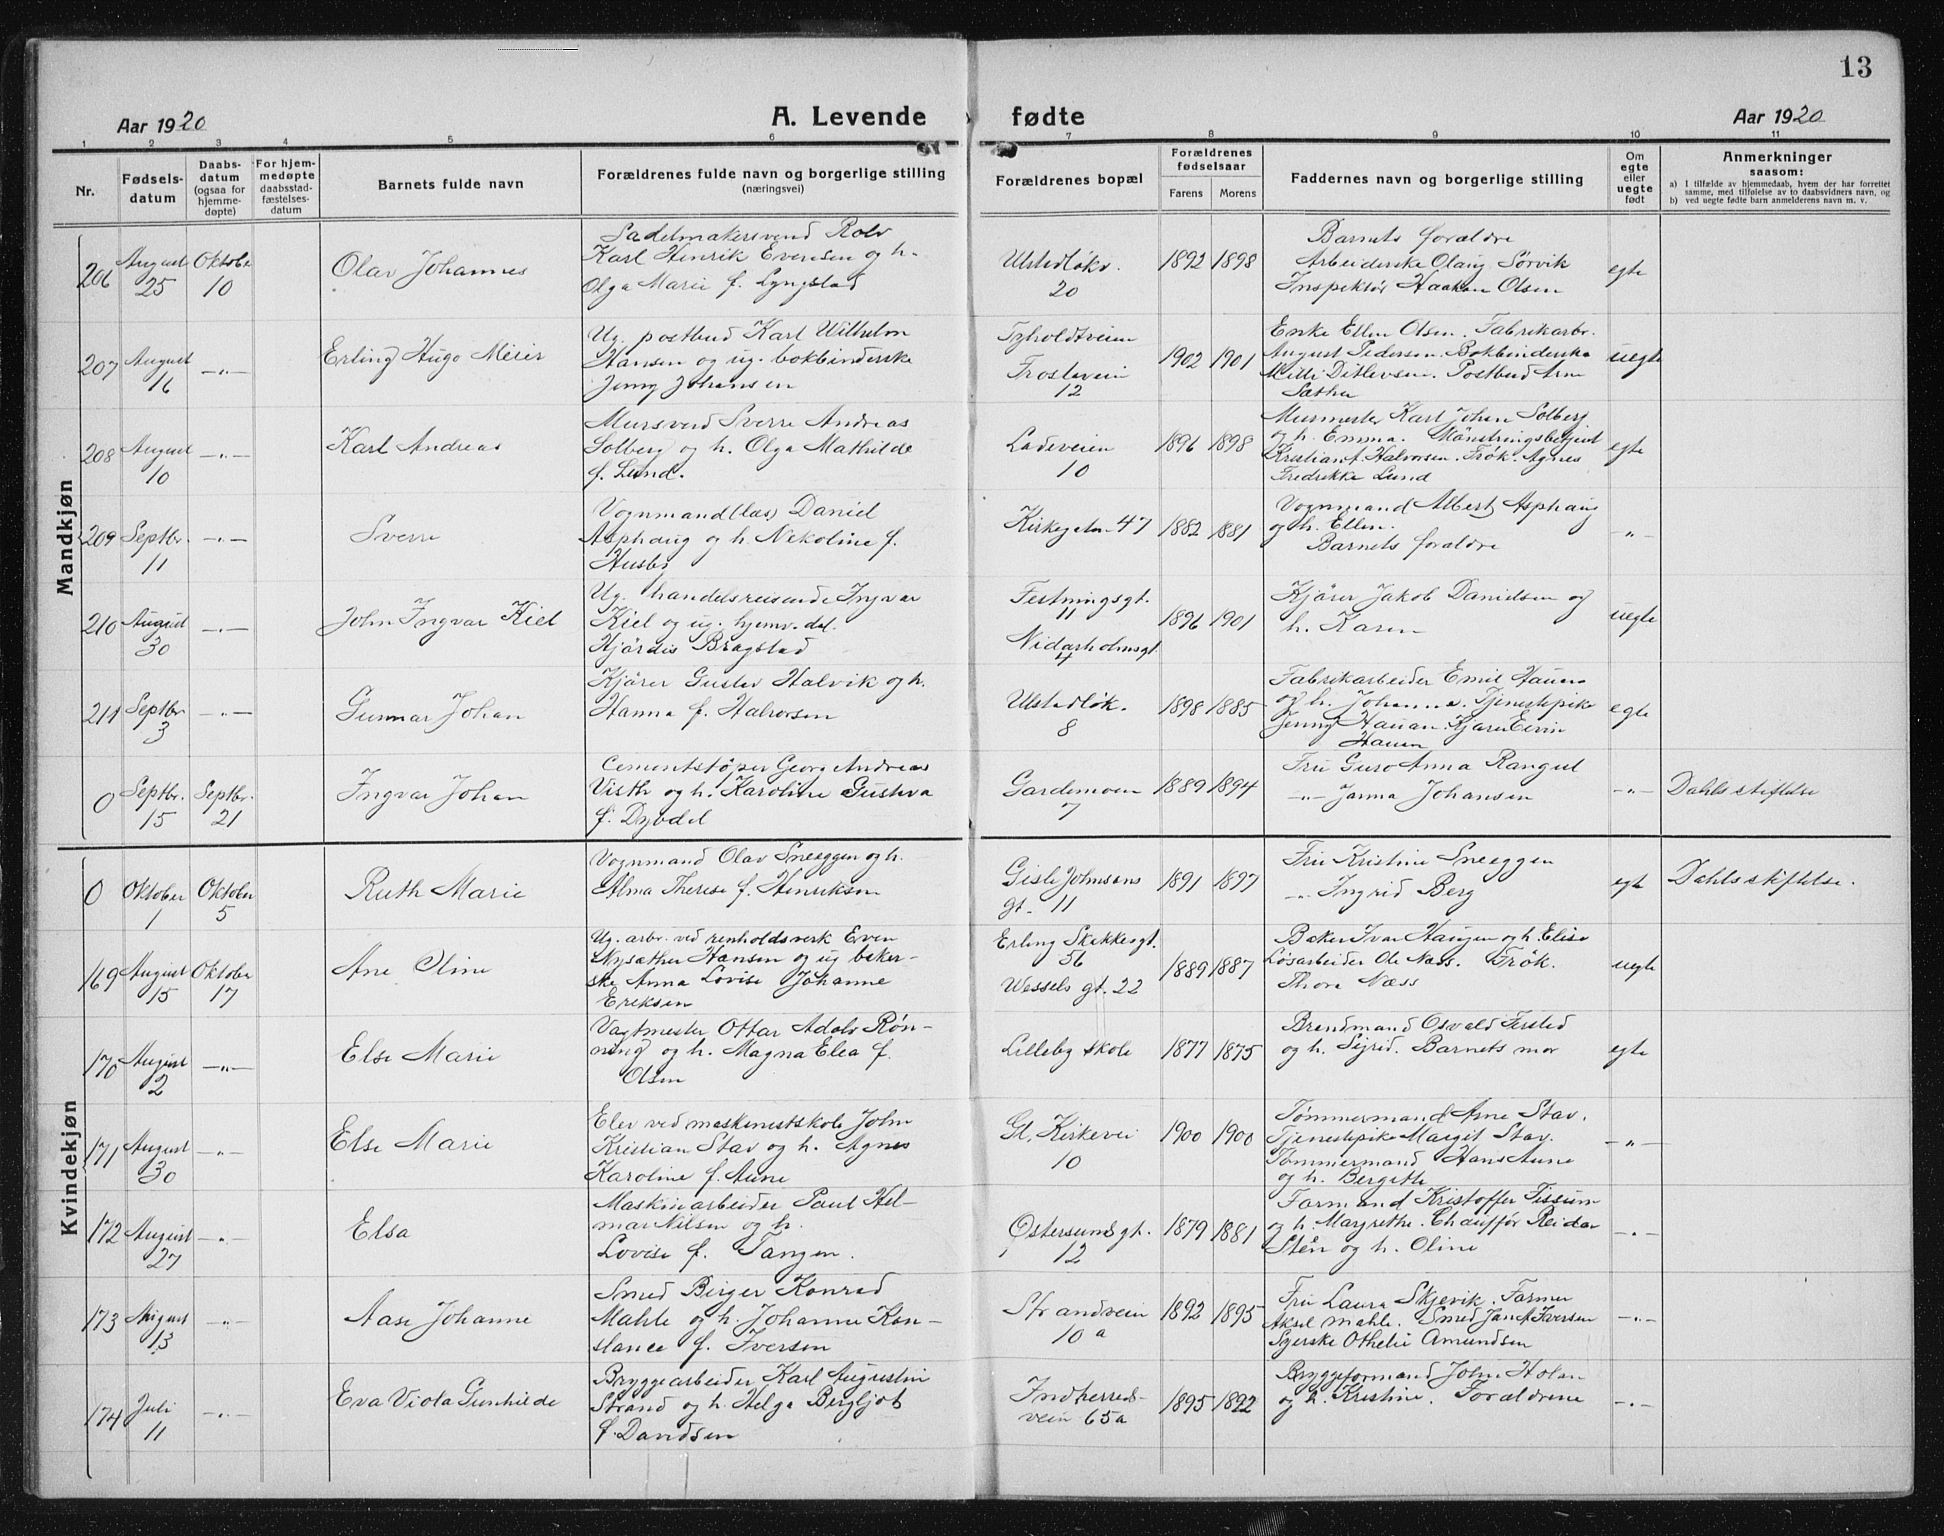 13
Aar 1920
A. Levende fødte
Aar 1920
1 2 3 4 5 6 7 8 9 10 11
Nr.
Fødsels-
datum
Daabs-
datum
(ogsaa for
hjemme-
døpte)
For hjem-
medøpte
daabsstad-
fæstelses-
datum
Barnets fulde navn
Forældrenes fulde navn og borgerlige stilling
(næringsvei)
Forældrenes bopæl
Forældrenes
fødselsaar
Farens Morens
Faddernes navn og borgerlige stilling
Om
egte
eller
uegte
født
Anmerkninger
saasom:
a) I tilfælde av hjemmedaab, hvem der har forrettet
samme, med tilføielse av to daabsvidners navn, og
b) ved uegte fødte barn anmelderens navn m. v.
Mandkjøn
206
August
25
Oktober
10
Olav Johannes
Sadelmakersvend Rolv
Karl Henrik Evensen og h.
Olga Marie f. Lyngstad
Ulstadløkv.
20
1892 1898
Barnets forældre
Arbeiderske Olaug Sørvik
Inspektør Haakon Olsen
egte
207
August
16
—"—
Erling Hugo Meier
Ug. postbud Karl Wilhelm
Hansen og ug. bokbinderske
Jenny Johansen
Tyholdtveien
Frostaveien
12
1902 1901
Enke Ellen Olsen. Fabrikarbr.
August Pedersen. Bokbinderske
Milli Ditlevsen. Postbud Arne
Sæther
uegte
208
August
10
—"—
Karl Andreas
Mursvend Sverre Andreas
Solberg og h. Olga Mathilde
f. Lund.
Ladeveien
10
1896 1898
Murmester Karl Johan Solberg
og h. Emma. Mønstringsbetjent
Kristian Halvorsen. Frøk. Agnes
Fredrikke Lund
egte
209
Septbr.
11
—"—
Sverre
Vognmand (læs) Daniel
Asphaug og h. Nekoline f.
Husby
Kirkegaten 47
1882 1881
Vognmand Albert Asphaug
og h. Ellen.
Barnets forældre
—"—
210
August
30
—"—
John Ingvar Kiel
Ug. handelsreisende Ingvar
Kiel og ug. hjemv. del.
Hjørdis Bragstad
Festningsgt.
11
Nidarholmsgt.
4
1896 1901
Kjører Jakob Danielsen og
h. Karen
uegte
211
Septbr.
3
—"—
Gunnar Johan
Kjører Gustav Halvik og h.
Hanna f. Halvorsen
Ulstadløk.
8
1898 1885
Fabrikarbeider Emil Hauan
og h. Johanna. Tjenestepike
Jenny Hauan. Kjører Eivin
Hauan
egte
0
Septbr.
15
Septbr.
21
Ingvar Johan
Cementstøper Georg Andreas
Visth og h. Karoline Gustava
f. Dybdal
Gardemoen
7
1889 1894
Fru Guro Anna Rangul
—"— Janna Johansen
—"—
Dahls stiftelse
Kvindekjøn
0
Oktober
1
Oktober
5
Ruth Marie
Vognmand Olav Sneeggen og h.
Alma Therese f. Henriksen
Gisle Johnsons
gt. 11
1891 1897
Fru Kristine Sneeggen
—"— Ingrid Berg
egte
Dahls stiftelse.
169
August
15
Oktober
17
Ane Oline
Ug. arbr. ved renholdsverk Even
Mysæther Hansen og ug baker-
ske Anna Lovise Johanne
Eriksen
Erling Skakkesgt.
56
Wessels gt. 22
1889 1887
Baker Ivar Haugen og h. Elise
Løsarbeider Ole Næss. Frøk.
Thora Næss
uegte
170
August
2
—"—
Else Marie
Vagtmester Ottar Adolv Røn-
ning og h. Magna Elea f.
Olsen
Lilleby skole
1877 1875
Brandmand Osvald Fersted
og h. Sigrid. Barnets mor
egte
171
August
30
—"—
Else Marie
Elev ved maskinistskole John
Kristian Stav og h. Agnes
Karoline f. Aune
Gl. Kirkevei
10
1900 1900
Tømmermand Arne Stav.
Tjenestepike Margit Stav.
Tømmermand Hans Aune
og h. Bergitte
—"—
172
August
27
—"—
Elsa
Maskinarbeider Paul Hel-
mar Nilsen og h.
Lovise f. Tangen.
Østersunds gt.
12
1879 1881
Formand Kristoffer Tissum
og h. Margrethe. Chauffør Reidar
Stén og h. Oline
—"—
173
August
13
—"—
Aase Johanne
Smed Birger Konrad
Mahle og h. Johanne Kon-
stance f. Iversen
Strandveien
10 a
1892 1895
Fru Laura Skjevik. Farmer
Aksel Mahle. Smed Iversen
Syerske Othelie Amundsen
—"—
174
Juli
11
—"—
Eva Viola Gunhilde
Bryggearbeider Karl Augustin
Strand og h. Helga Bergljot
f. Davidsen
Indherreds-
veien 65a
1895 1892
Bryggeformand John Holan
og h. Kristine. Forældrene
—"—